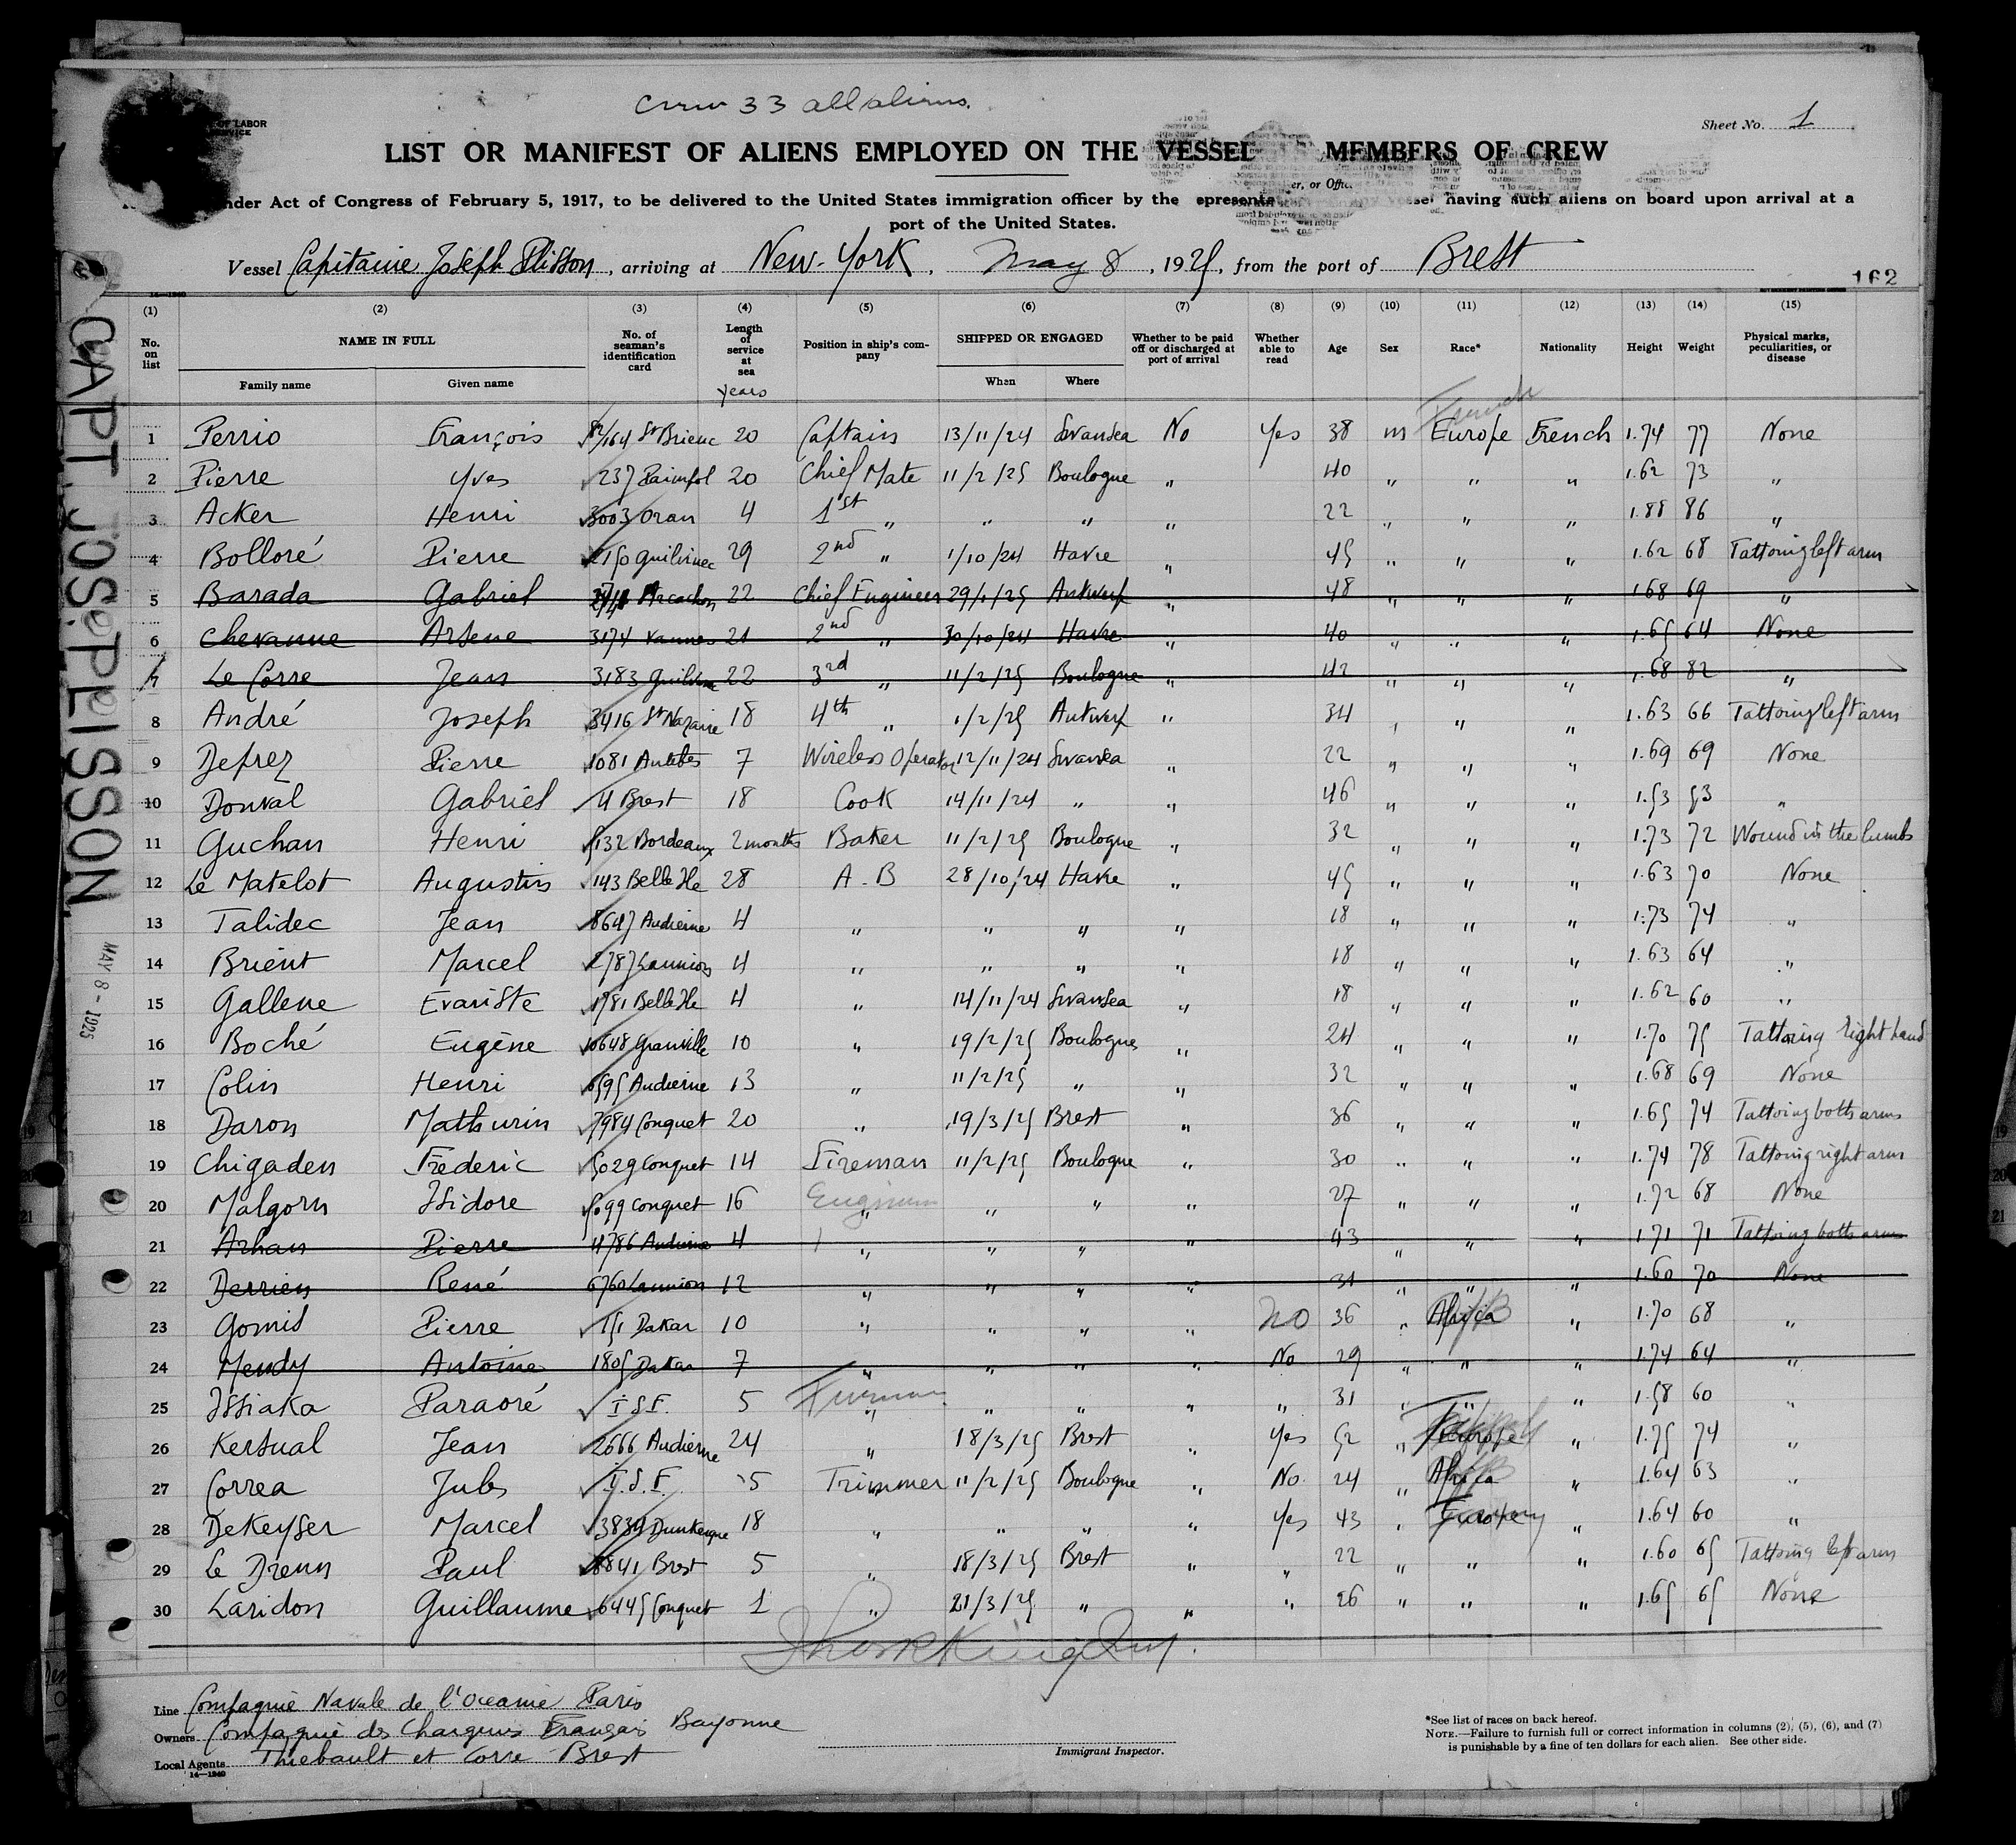 Crew 33 all aliens.
OF LABOR
SERVICE
Sheet No. 1
LIST OR MANIFEST OF ALIENS EMPLOYED ON THE VESSEL MEMBERS OF CREW
er, or Offic
under Act of Congress of February 5, 1917, to be delivered to the United States immigration officer by the representa having such aliens on board upon arrival at a
port of the United States.
Vessel Capitaine Joseph Plisson, arriving at New-York, May 8, 1925, from the port of Brest
162
CAPT JOSEPLISSON
MAY 8 - 1925
(1) (2) (3) (4) (5) (6) (7) (8) (9) (10) (11) (12) (13) (14) (15)
No. on list NAME IN FULL Family name Given name No. of seaman's identification card Length of service at sea years Position in ship's company SHIPPED OR ENGAGED When Where Whether to be paid off or discharged at port of arrival Whether able to read Age Sex Race* Nationality Height Weight Physical marks, peculiarities, or disease
French
1 Perrio François St Brieuc 20 Captain 13/11/24 Swansea No Yes 38 m Europe French 1.74 77 None
2 Pierre Yves 237 Paimpol 20 Chief Mate 11/2/25 Boulogne " 40 " " " 1.62 73 "
3 Acker Henri 3003 Oran 4 1st " " " " 22 " " " 1.88 86 "
4 Bolloré Pierre 2150 Guilvinec 29 2nd " 1/10/24 Havre " 45 " " " 1.62 68 Tattoing left arm
5 Barada Gabriel Arcachon 22 Chief Engineer 29/1/25 Antwerp " 48 " " " 1.68 69 "
6 Chevanne Arsene 3174 Vannes 21 2nd " 30/10/24 Havre " 40 " " " 1.65 64 None
7 Le Corre Jean 3183 22 3rd " 11/2/25 Boulogne " 42 " " " 1.68 82 "
8 André Joseph 3416 St Nazaire 18 4th " 1/2/25 Antwerp " 34 " " " 1.63 66 Tattoing left arm
9 Defrez Pierre 1081 Antibes 7 Wireless Operator 12/11/24 Swansea " 22 " " " 1.69 69 None
10 Donval Gabriel 4 Brest 18 Cook 14/11/24 " " 46 " " " 1.53 53 "
11 Guchan Henri 5132 Bordeaux 2 months Baker 11/2/25 Boulogne " 32 " " " 1.73 72 Wound in the lumbs
12 Le Matelot Augustin 143 Belle Ile 28 A.B 28/10/24 Havre " 45 " " " 1.63 70 None
13 Talidec Jean 8647 Audierne 4 " " " " 18 " " " 1.73 74 "
14 Brient Marcel 2787 Lannion 4 " " " " 18 " " " 1.63 64 "
15 Gallene Evariste 1981 Belle Ile 4 " 14/11/24 Swansea " 18 " " " 1.62 60 "
16 Boché Eugène 10648 Granville 10 " 19/2/25 Boulogne " 24 " " " 1.70 75 Tattoing right hand
17 Colin Henri 6595 Audierne 13 " 11/2/25 " " 32 " " " 1.68 69 None
18 Daron Mathurin 7984 Conquet 20 " 19/3/25 Brest " 36 " " " 1.65 74 Tattoing both arms
19 Chigaden Frederic 5029 Conquet 14 Fireman 11/2/25 Boulogne " 30 " " " 1.74 78 Tattoing right arm
20 Malgorn Isidore 5099 Conquet 16 " " " " 27 " " " 1.72 68 None
21 Arhan Pierre 4786 Audierne 4 " " " " 43 " " " 1.71 71 Tattoing both arms
22 Derrien René 6760 Lannion 12 " " " " 31 " " " 1.60 70 None
23 Gomis Pierre 151 Dakar 10 " " " " No 36 " Africa " 1.70 68 "
24 Mendy Antoine 1805 Dakar 7 " " " " No 29 " " " 1.74 64 "
25 Issiaka Paraoré I.S.F. 5 Fireman " " " " " 31 " " " 1.58 60 "
26 Kersual Jean 2666 Audierne 24 " 18/3/25 Brest " Yes 52 " Europe " 1.75 74 "
27 Correa Jules I.S.F. 5 Trimmer 11/2/25 Boulogne " No. 24 " Africa " 1.64 63 "
28 DeKeyser Marcel 3839 Dunkerque 18 " " " " Yes 43 " Europe " 1.64 60 "
29 Le Dreun Paul 8841 Brest 5 " 18/3/25 Brest " " 22 " " " 1.60 65 Tattoing left arm
30 Laridon Guillaume 6445 Conquet 1 " 21/3/25 " " " 26 " " " 1.65 65 None
Line Compagnie Navale de l'Oceanie Paris
Owners Compagnie des Chargeurs Français Bayonne
Local Agents Thiebault et Corre Brest
14—1240
Immigrant Inspector.
*See list of races on back hereof.
NOTE.—Failure to furnish full or correct information in columns (2), (5), (6), and (7)
is punishable by a fine of ten dollars for each alien. See other side.